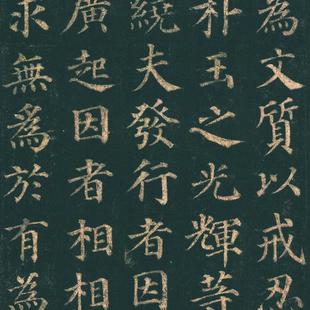 為文質以戒忍
朴玉之光輝等
繞夫發行者因
廣起因者相相
求無爲於有為